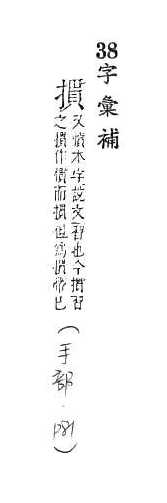 38字彙補
摜
又摜本字說文習也今摜習
之摜作慣而摜但為摜帶已
(手部．P81)